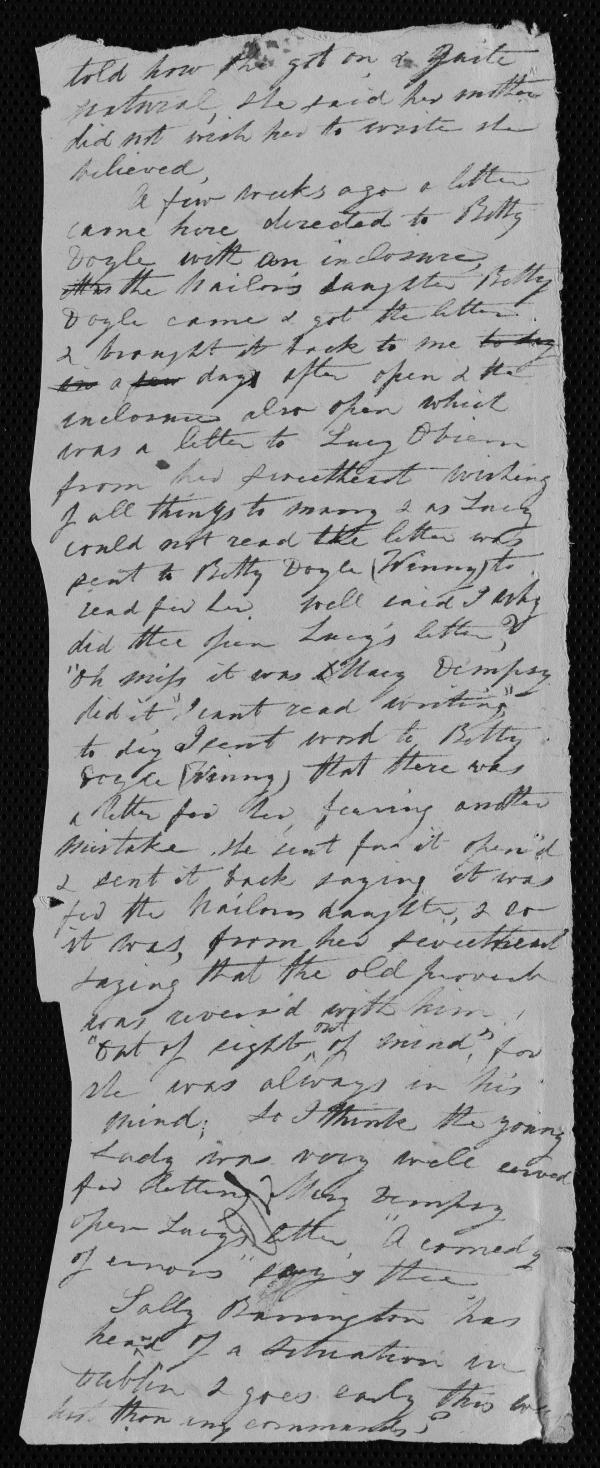 told how she got on & quite
natural, she said her mother
did not wish her to write she
believed,
A few weeks ago a letter
came here directed to Betty
Doyle with an inclosure,
the Nailor's daughter Betty
Doyle came & got the letter
& brought it back to me to day
in a few days after open & the
inclosure also open which
was a letter to Lucy Obiern
from her sweetheart wishing
of all things to marry & as Lucy
could not read the letter was
sent to Betty Doyle (Winny) to
read for her. Well said I why
did thee open Lucy's letter?
"Oh miss it was Mary Dempsy
did it" I cant read writing"
to day I sent word to Betty
Doyle (Winny) that there was
a letter for her, fearing another
mistake. She sent for it open'd
& sent it back saying it was
for the Nailors daughter, & so
it was, from her sweetheart
saying that the old proverb
was revers'd with him,
"Out of sight, out of mind," for
she was always in his
mind; So I think the young
Lady was very well served
for letting Mary Dempsy
open Lucy's letter, "A comedy
of errors" says thee
Sally Barrington has
heard of a situation in
Dublin & goes early this
hast thou any commands?